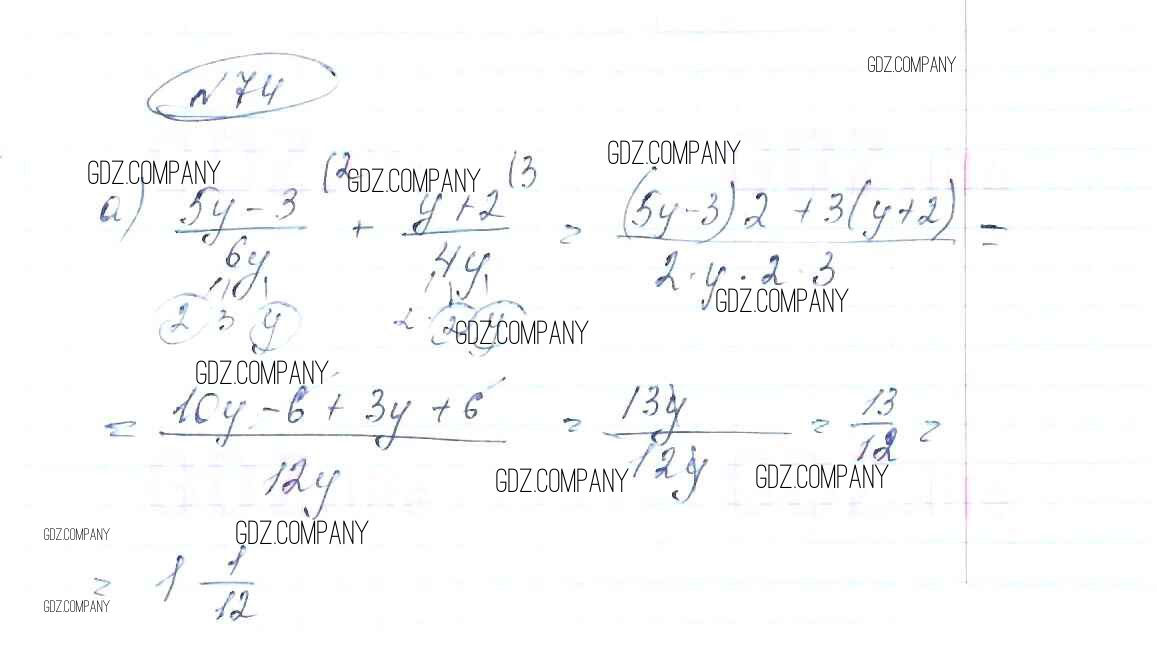 GDZ.COMPANY
№74
GDZ.COMPANY
GDZ.COMPANY
GDZ.COMPANY
а) (5y-3)/(6y) (2 + (y+2)/(4y) (3 = ((5y-3)2+3(y+2))/(2·y·2·3) =
2 3 y 2·2 y
GDZ.COMPANY
GDZ.COMPANY
GDZ.COMPANY
= (10y-6+3y+6)/(12y) = (13y)/(12y) = 13/12 =
GDZ.COMPANY
GDZ.COMPANY
GDZ.COMPANY
GDZ.COMPANY
= 1 1/12
GDZ.COMPANY